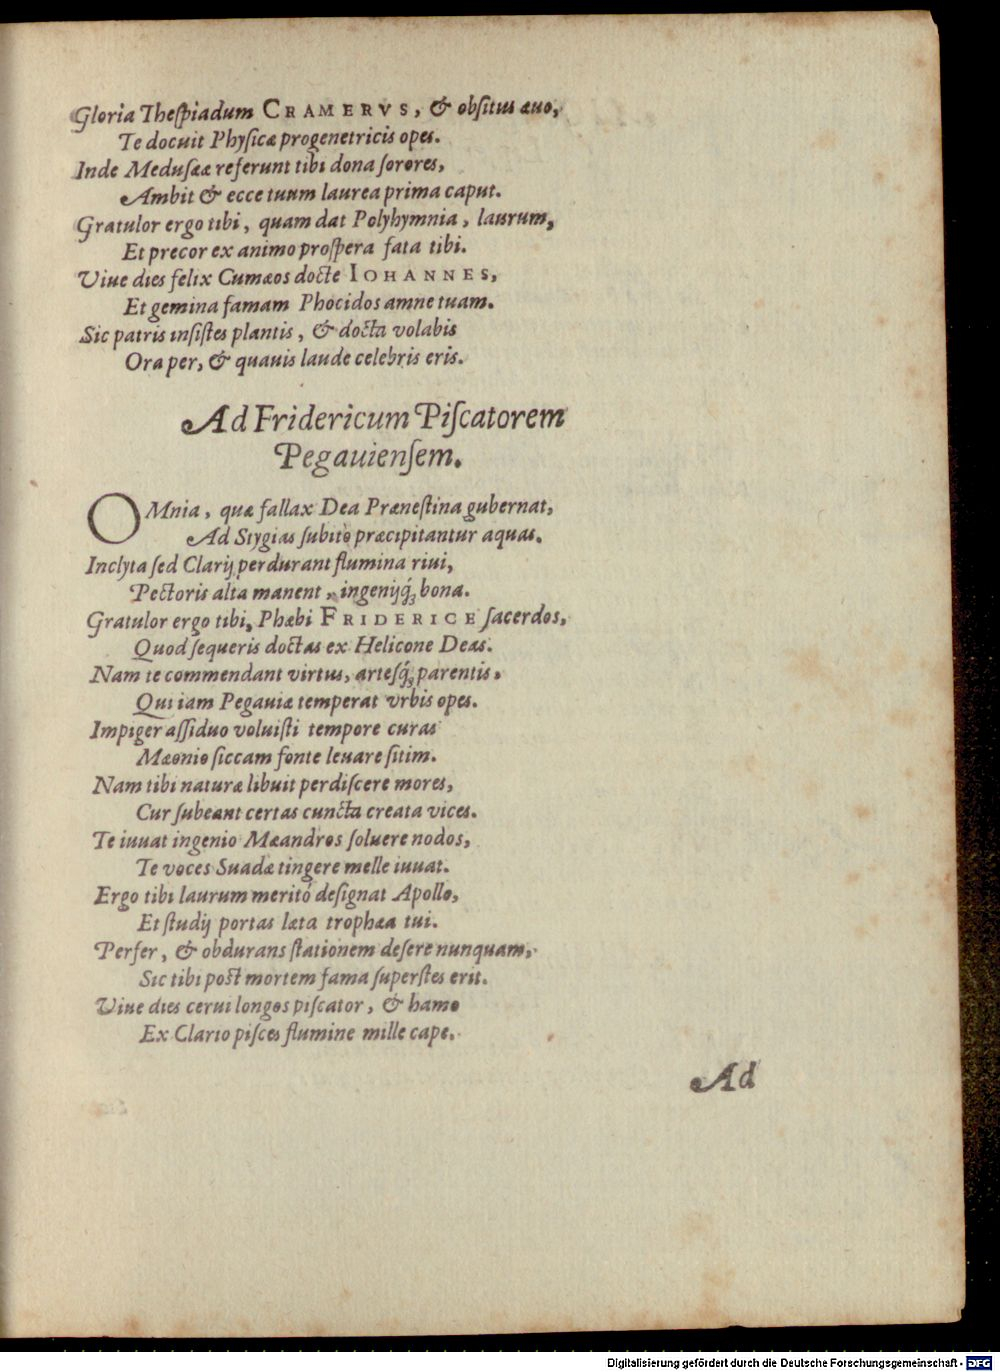 Gloria Theſpiadum CRAMERVS, & obſitus æuo,
Te docuit Phyſicæ progenetricis opes.
Inde Meduſææ referunt tibi dona ſorores,
Ambit & ecce tuum laurea prima caput.
Gratulor ergo tibi, quam dat Polyhymnia, laurum,
Et precor ex animo proſpera fata tibi.
Viue dies felix Cumæos docte IOHANNES,
Et gemina famam Phocidos amne tuam.
Sic patris inſiſtes plantis, & docta volabis
Ora per, & quauis laude celebris eris.
Ad Fridericum Piſcatorem
Pegauienſem.
OMnia, quæ fallax Dea Præneſtina gubernat,
Ad Stygias ſubitò præcipitantur aquas.
Inclyta ſed Clarij perdurant flumina riui,
Pectoris alta manent, ingenijq́ꝫ bona.
Gratulor ergo tibi, Phœbi FRIDERICE ſacerdos,
Quod ſequeris doctas ex Helicone Deas.
Nam te commendant virtus, arteſq́ꝫ parentis,
Qui iam Pegauiæ temperat vrbis opes.
Impiger aſſiduo voluiſti tempore curas
Mæonio ſiccam fonte leuare ſitim.
Nam tibi naturæ libuit perdiſcere mores,
Cur ſubeant certas cuncta creata vices.
Te iuuat ingenio Mæandros ſoluere nodos,
Te voces Suadæ tingere melle iuuat.
Ergo tibi laurum meritò deſignat Apollo,
Et ſtudij portas læta trophæa tui.
Perfer, & obdurans ſtationem deſere nunquam,
Sic tibi poſt mortem fama ſuperſtes erit.
Viue dies cerui longos piſcator, & hamo
Ex Clario piſces flumine mille cape.
Ad
Digitalisierung gefördert durch die Deutsche Forschungsgemeinschaft - DFG